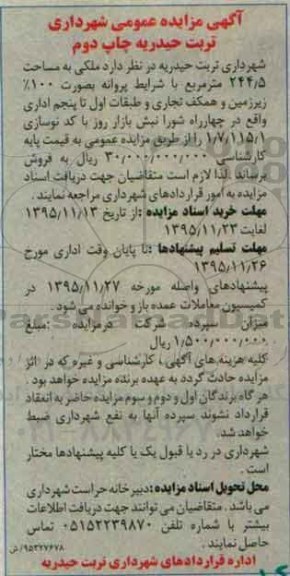 آگهی مزایده عمومی شهرداری
تربت حیدریه چاپ دوم
شهرداری تربت حیدریه در نظر دارد ملکی به مساحت
۲۴۴٫۵ مترمربع با شرایط پروانه بصورت ۱۰۰٪
زیرزمین و همکف تجاری و طبقات اول تا پنجم اداری
واقع در چهارراه شورا نبش بازار روز با کد نوسازی
۱٫۷٫۱۱۵٫۱ را از طریق مزایده عمومی به قیمت پایه
کارشناسی ۳۰٫۰۰۰٫۰۰۰٫۰۰۰ ریال به فروش
برساند .لذا لازم است متقاضیان جهت دریافت اسناد
مزایده به امور قراردادهای شهرداری مراجعه نمایند .
مهلت خرید اسناد مزایده :از تاریخ ۱۳۹۵٫۱۱٫۱۳
لغایت ۱۳۹۵٫۱۱٫۲۳
مهلت تسلیم پیشنهادها :تا پایان وقت اداری مورخ
۱۳۹۵٫۱۱٫۲۶
پیشنهادهای واصله مورخه ۱۳۹۵٫۱۱٫۲۷ در
کمیسیون معاملات عمده باز و خوانده می شود .
میزان سپرده شرکت درمزایده :مبلغ
۱٫۵۰۰٫۰۰۰٫۰۰۰ ریال
کلیه هزینه های آگهی ، کارشناسی و غیره که در اثر
مزایده حادث گردد به عهده برنده مزایده خواهد بود .
هر گاه برندگان اول و دوم و سوم مزایده حاضر به انعقاد
قرارداد نشوند سپرده آنها به نفع شهرداری ضبط
خواهد شد.
شهرداری در رد یا قبول یک یا کلیه پیشنهادها مختار
است .
محل تحویل اسناد مزایده :دبیرخانه حراست شهرداری
می باشد . متقاضیان می توانند جهت دریافت اطلاعات
بیشتر با شماره تلفن ۰۵۱۵۲۲۳۹۸۷۰ تماس
حاصل نمایند .
۹۵۲۲۷۶۷۸/ش
اداره قراردادهای شهرداری تربت حیدریه